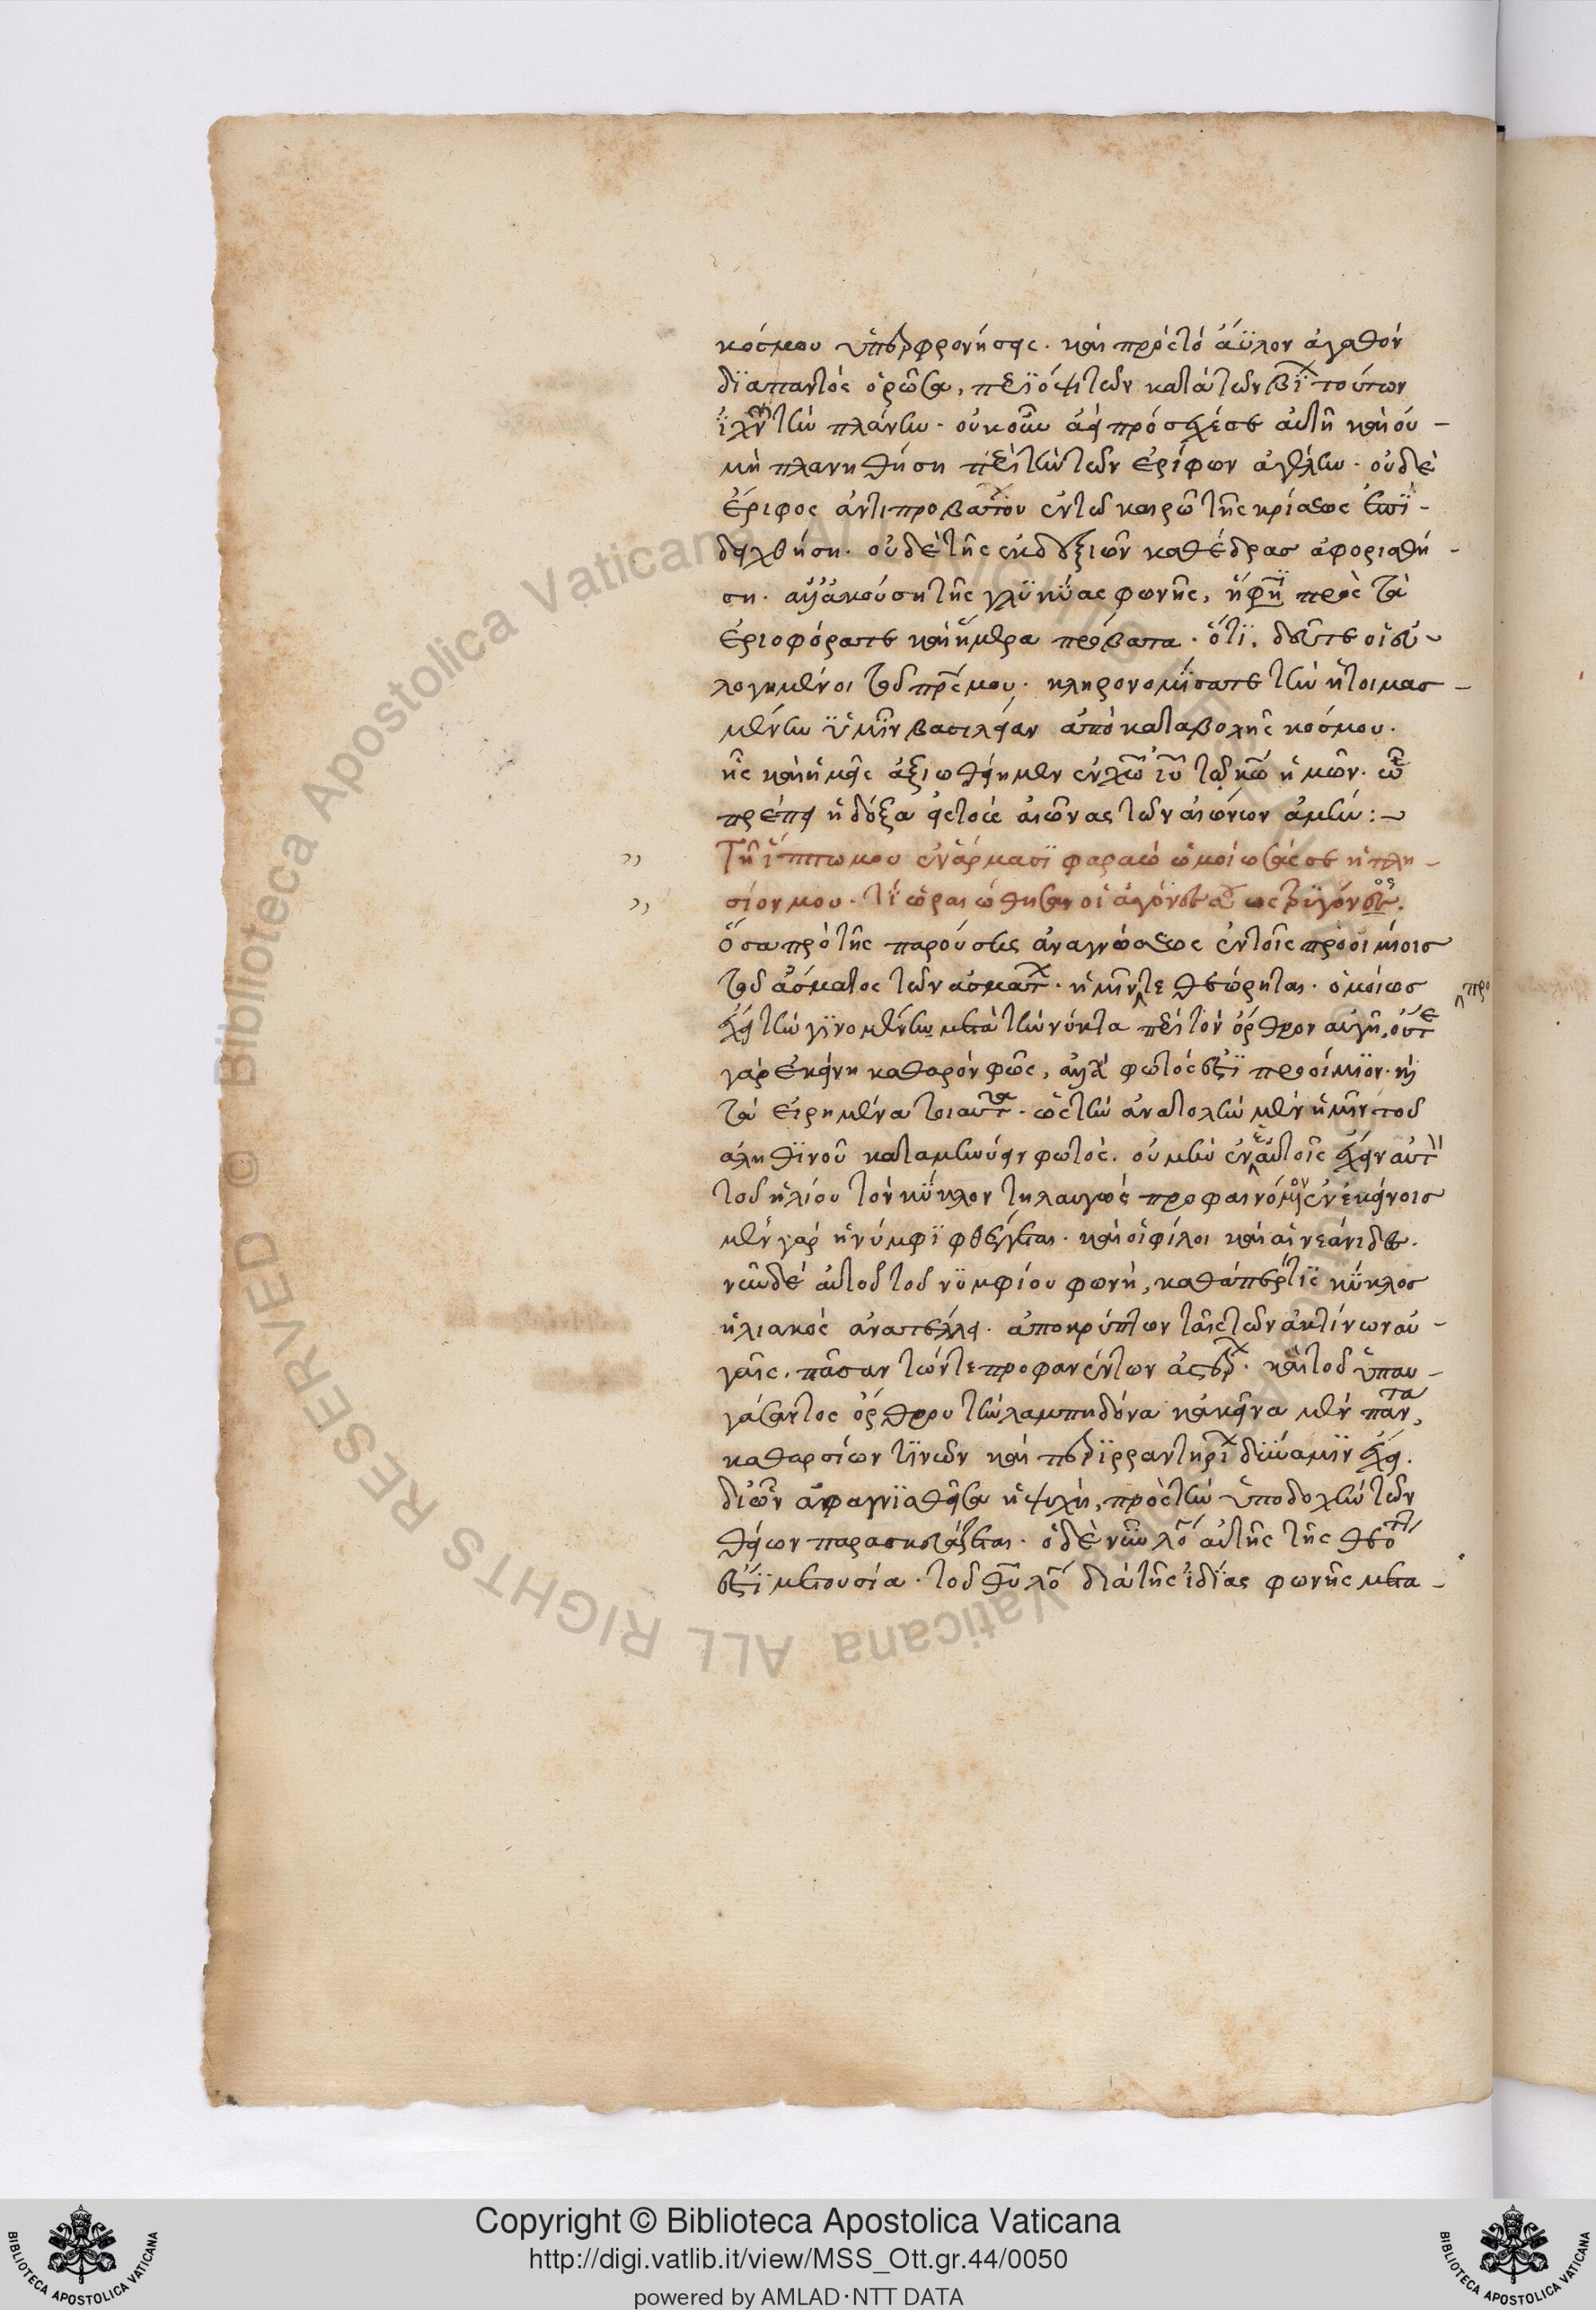 κόσμου ὑπερφρονήσας. καὶ πρὸς τὸ ἄϋλον ἀγαθὸν
δϊαπαντὸς ὁρῶσα, περιόψϊ τῶν κατὰ τὸν βΐ τούτων
ἰχνῶν τὴν πλάνην. οὐκοῦν ἀεὶ πρόσχέσε αὐτῆ καὶ οὐ-
μὴ πλανηθήση περὶ τὴν τῶν ἐρίφων ἀγέλην. οὐδὲ
ἔριφος ἀντιπροβάτου ἐν τῶ καιρῶ τῆς κρίσεως ἐπϊ-
δειχθήση. οὐδὲ τῆς ἐκ δεξιῶν καθέδρας ἀφορισθή-
ση. ἀλλ' ἀκούση τῆς γλϋκείας φωνῆς, ἥ φησϊ πρὸς τὰ
ἐριοφόρα τε καὶ ἥμερα πρόβατα. ὅτι, δεῦτε οἱ εὐ-
λογημένοι τοῦ πρς μου. κληρονομήσατε τὴν ἡτοιμασ-
μένην ϋμῖν βασιλείαν ἀπὸ καταβολῆς κόσμου.
ἧς καὶ ἡμᾶς ἀξιωθείημεν ἐν χω ιυ τῶ κω ἡμῶν. ὧ
πρέπει ἡ δόξα εἰς τοὺς αἰῶνας τῶν αἰώνων ἀμήν:-
Τῆ ἵππω μου ἐν ἅρμασϊ φαραὼ ὡμοίωσάς σε ἡ πλη-
σίον μου. τί ὡραιώθησαν σϊαγόνες σου ὡς τρϋγόνος.
Ὅσα πρὸ τῆς παρούσης ἀναγνώσεως ἐν τοῖς προοιμίοις
τοῦ ἄσματος τῶν ἀσμάτων. ἡμῖν τε θεώρηται. ὁμοίως
προ
ἔχει τὴν γϊνομένην μετὰ τὴν νύκτα περὶ τὸν ὄρθρον αὐγῆ, οὔτε
γὰρ ἐκείνη καθαρὸν φῶς, ἀλλὰ φωτὸς ἐστϊ προοίμϊον. καὶ
τὰ εἰρημένα τοιαῦτα. ὡς τὴν ἀνατολὴν μὲν ἡμῖν τοῦ
ἀληθϊνοῦ καταμηνύειν φωτὸς. οὐ μὴν ἐν ἑαυτοῖς ἔχειν αὐτὸν
τοῦ ἡλίου τὸν κύκλον τηλαυγῶς προφαινόμενον ἐν ἐκείνοις
μὲν γὰρ ἡ νύμφϊ φθέγγεται. καὶ οἱ φίλοι καὶ αἱ νεάνιδες.
νῦν δὲ αὐτοῦ τοῦ νϋμφίου φωνὴ, καθάπερ τϊς κύκλος
ἡλιακὸς ἀνατέλλει. ἀποκρύπτων ταῖς τῶν ἀκτίνων αὐ-
γαῖς. πᾶσαν τῶν τε προφανέντων ἀστέρων. καὶ τοῦ ὑπαυ-
γάσαντος ὄρθρου τὴν λαμπηδόνα κἀκεῖνα μὲν πάντα,
καθαρσίων τϊνῶν καὶ περϊρραντηρίων δύναμϊν ἔχει.
δι' ὧν ἀφαγνϊσθεῖσα ἡ ψυχὴ, πρὸς τὴν ὑποδοχὴν τῶν
θείων παρασκευάζεται. ὁ δὲ νῦν λόγος αὐτῆς τῆς θεότητος
ἐστϊ μετουσία. τοῦ θυ λόγου διὰ τῆς ἰδίας φωνῆς μετα-
Copyright © Biblioteca Apostolica Vaticana
http://digi.vatlib.it/view/MSS_Ott.gr.44/0050
powered by AMLAD·NTT DATA